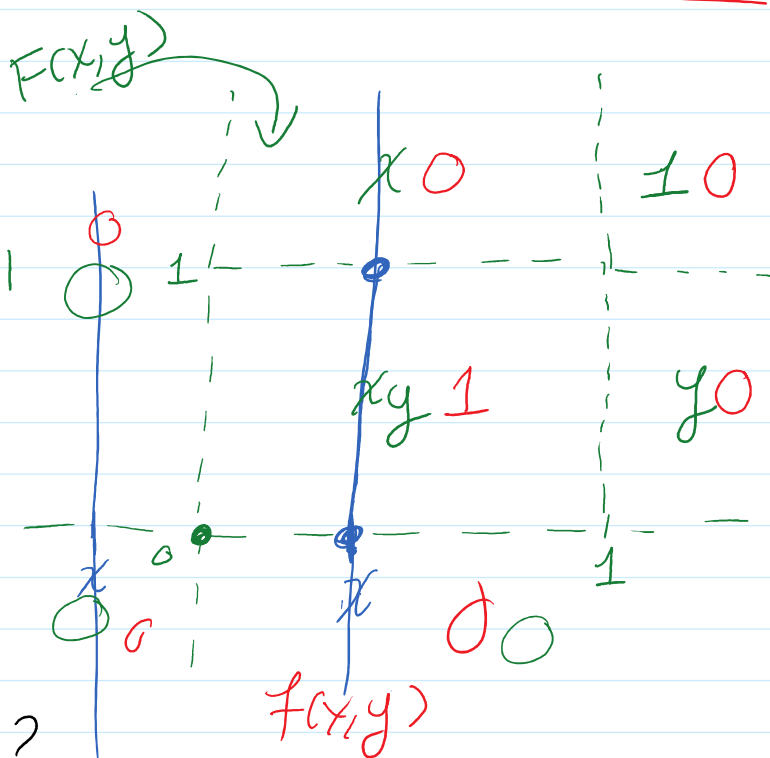 F(x,y)
x 0
1 0
0
1
0
1
xy 1
y 0
0
x
0
0
x
0
0
1
f(x,y)